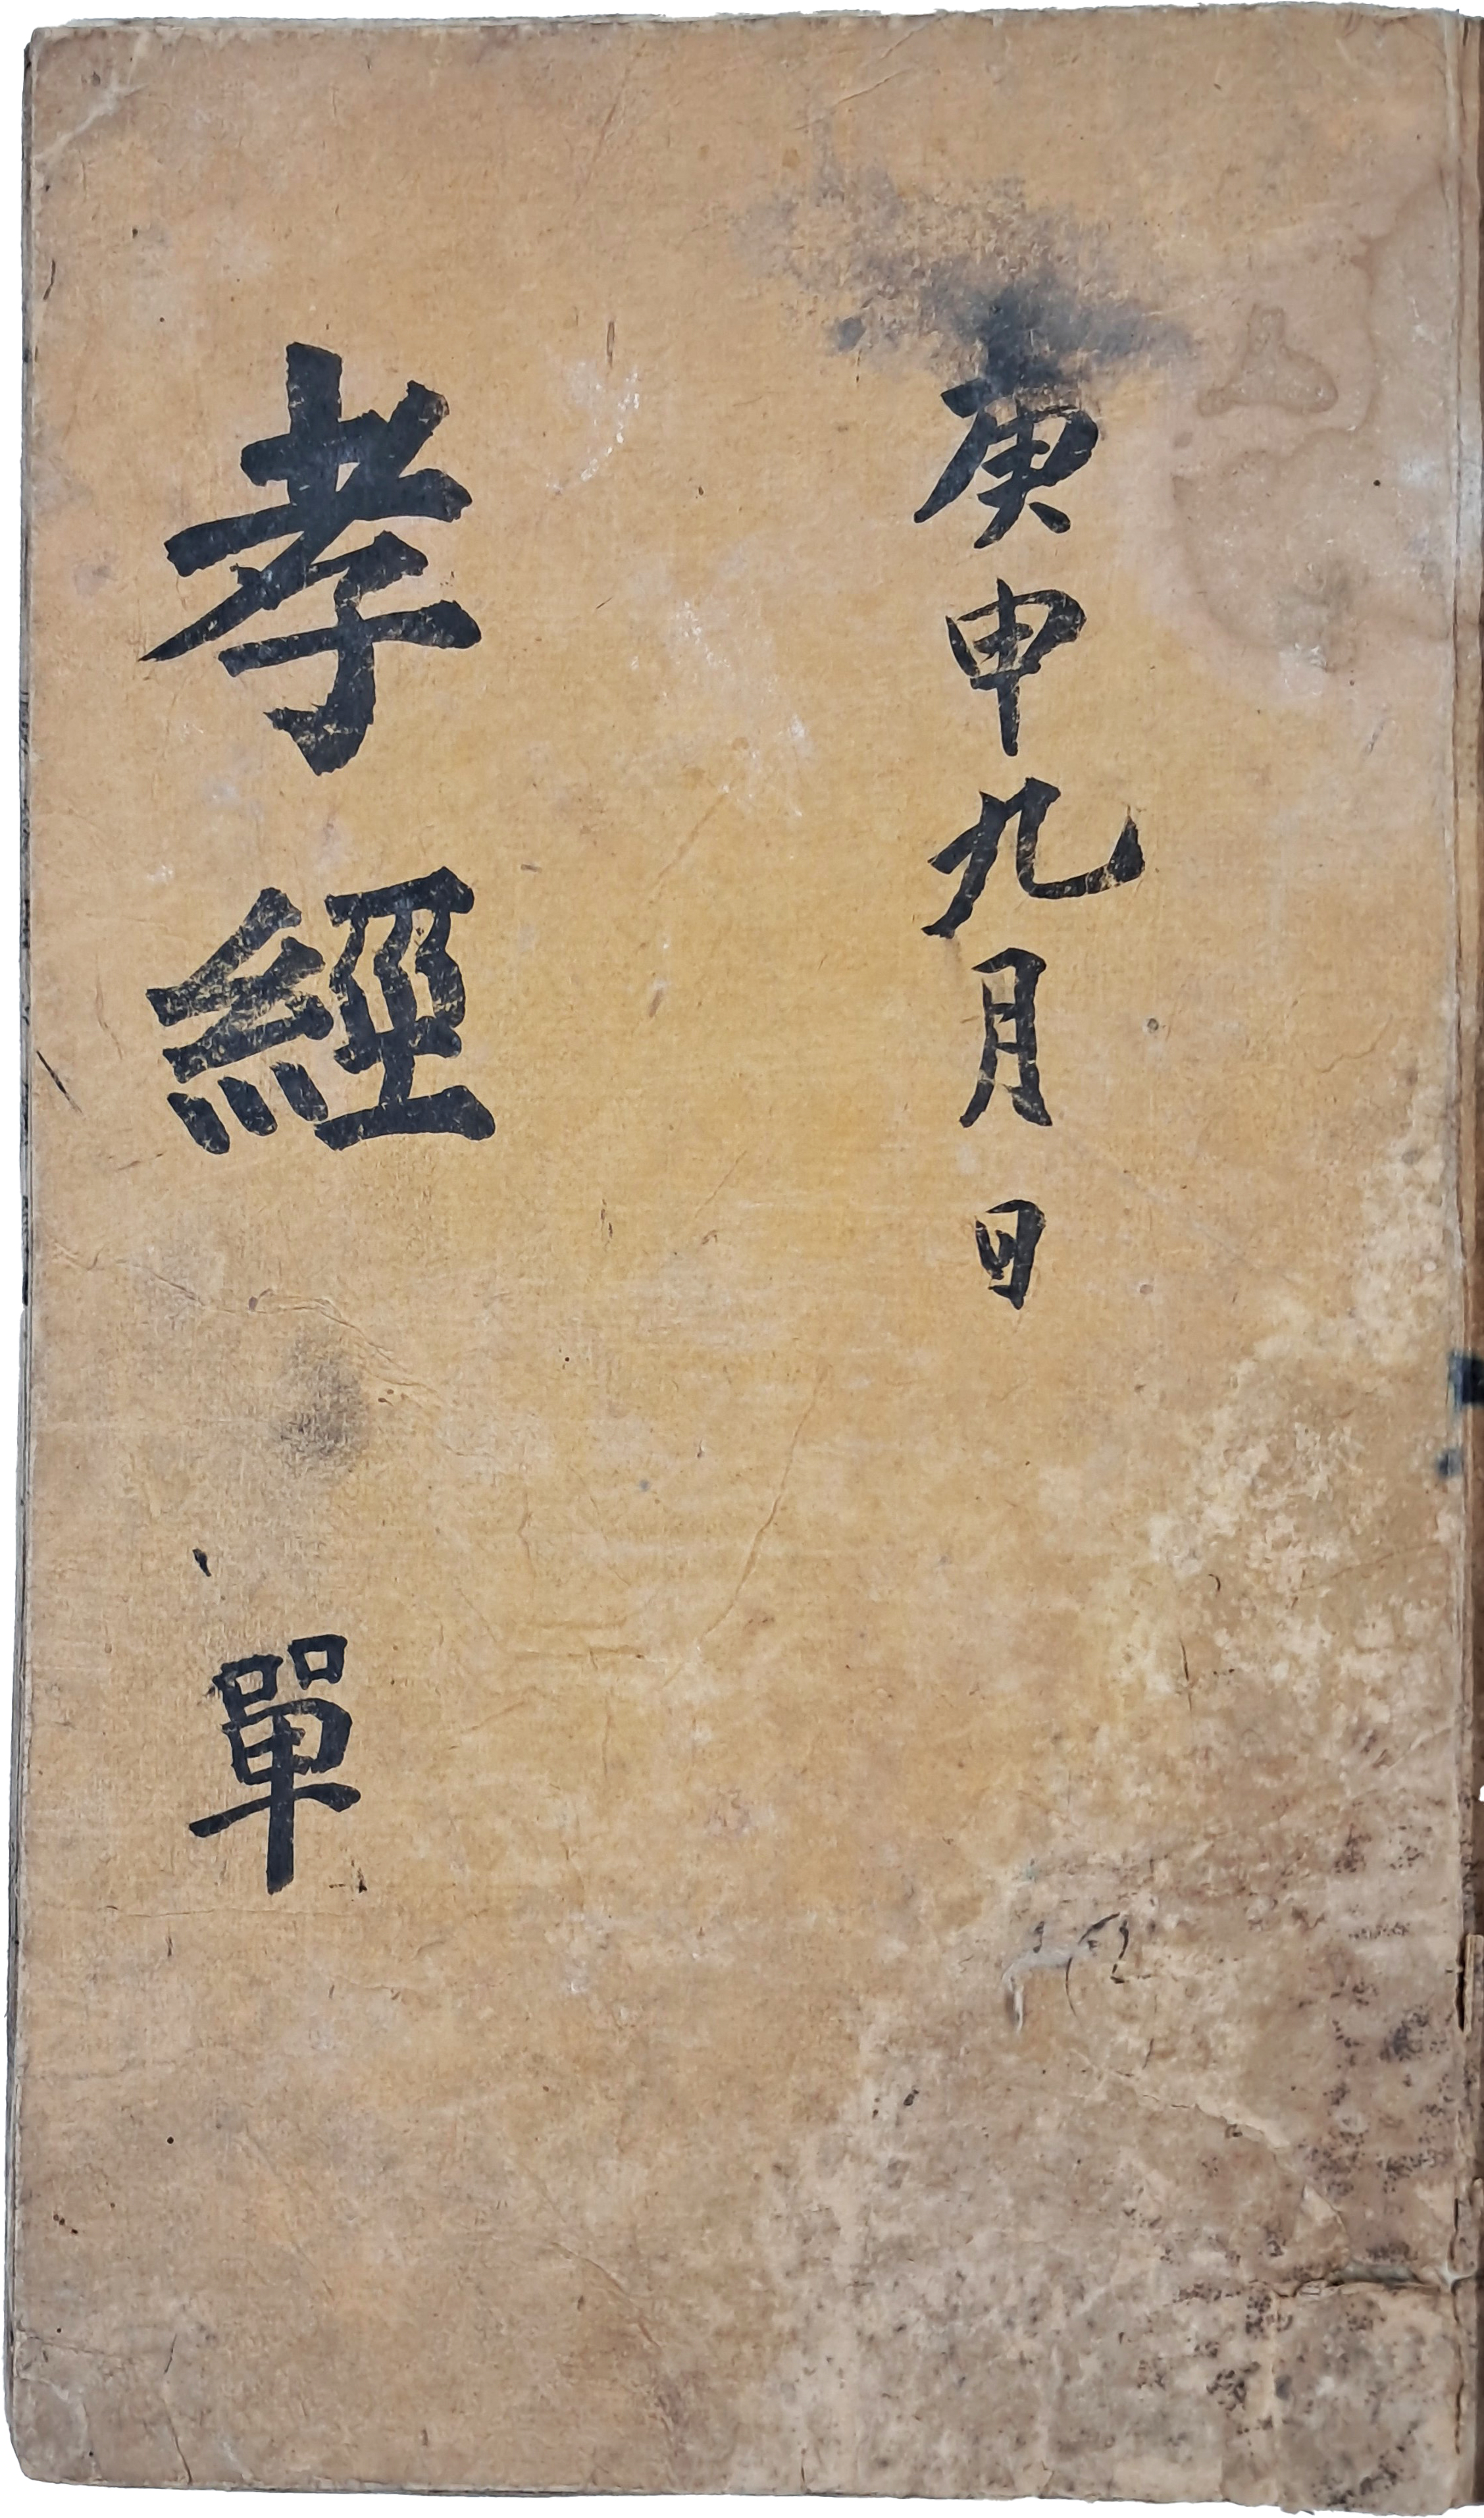 庚申九月日
孝經 單